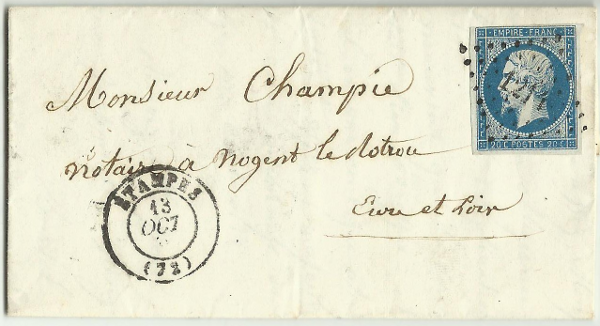 EMPIRE FRANC
20 C. POSTES 20 C.
Monsieur Champie
notaire a Nogent le Rotrou
Eure et Loir
ETAMPES
13
OCT
(72)